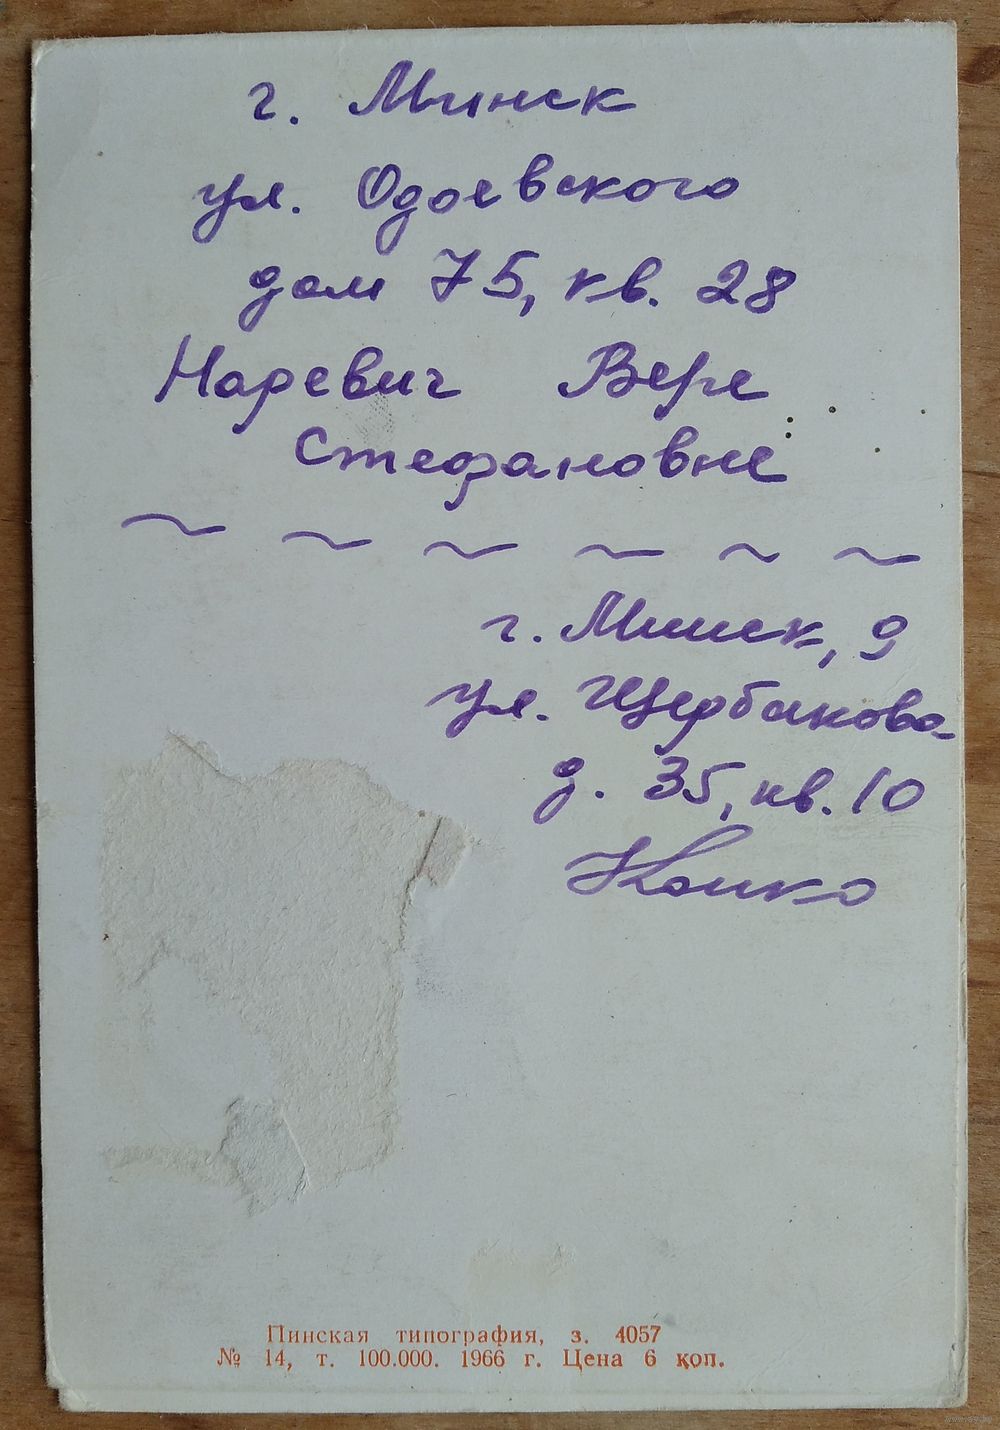 г. Минск
ул. Одоевского
дом 75, кв. 28
Наревич Вере
Стефановне
г. Минск, 9
ул. Щербакова
д. 35, кв. 10
Пинская типография, з. 4057
№ 14, т. 100.000. 1966 г. Цена 6 коп.